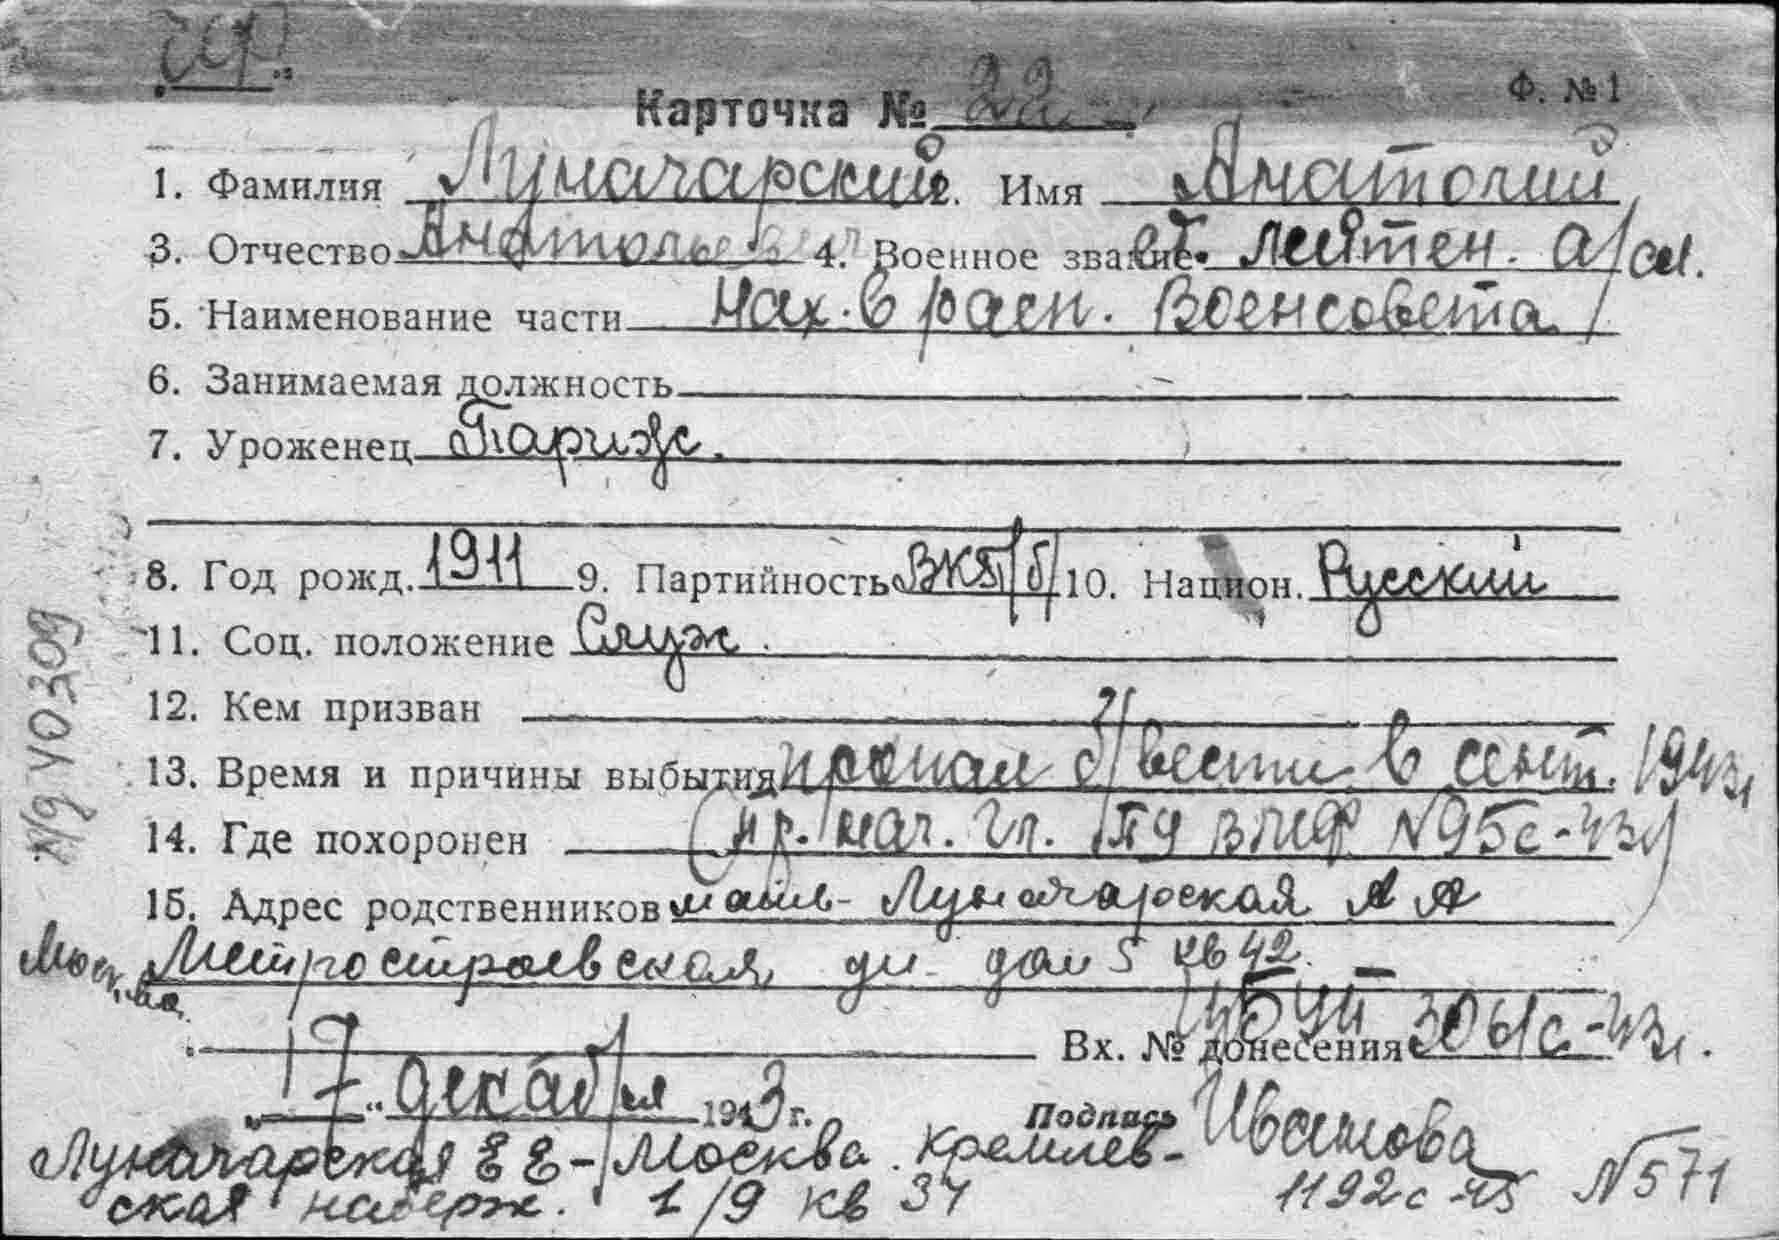 Ф. №1
Карточка № 22
1. Фамилия Луначарский. Имя Анатолий
3. Отчество Анатольевич 4. Военное звание лейтен. а/сл.
5. Наименование части нах. в расп. Военсовета
6. Занимаемая должность
7. Уроженец Париж.
8. Год рожд. 1911 9. Партийность ВКП/б/ 10. Национ. Русский
11. Соц. положение Служ.
12. Кем призван
13. Время и причины выбытия пропал б/вести в сент. 1943г
14. Где похоронен (пр. нач. Гл. ПУ ВМФ №95с-43г)
15. Адрес родственников мать- Луначарская А А
Москва Метростроевская ул дом 5 кв 42.
Вх. № донесения 3061с-43г.
17 декабря 1943 г. Подпись Иванова
Луначарская Е Е - Москва. Кремлев-
ская набереж. 1/9 кв 34 1192с-45 №571
№ 40309